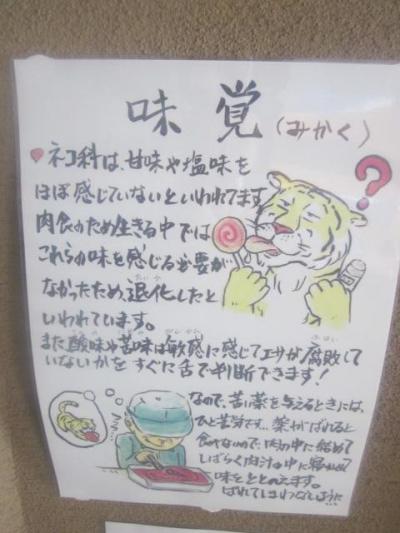 味覚(みかく)
ネコ科は、甘味や塩味を
ほぼ感じていないといわれてます
肉食のため生きる中では
これらの味を感じる必要が
なかったため、退化したと
いわれています。
また酸味や苦味は敏感に感じてエサが腐敗して
いないかをすぐに舌で判断できます!
?
なので、苦い薬を与えるときには、
ひと苦労です。薬がばれると
食べないので、肉の中に
しばらく肉汁の中に
味をととのえます。
ばれてしまわないように